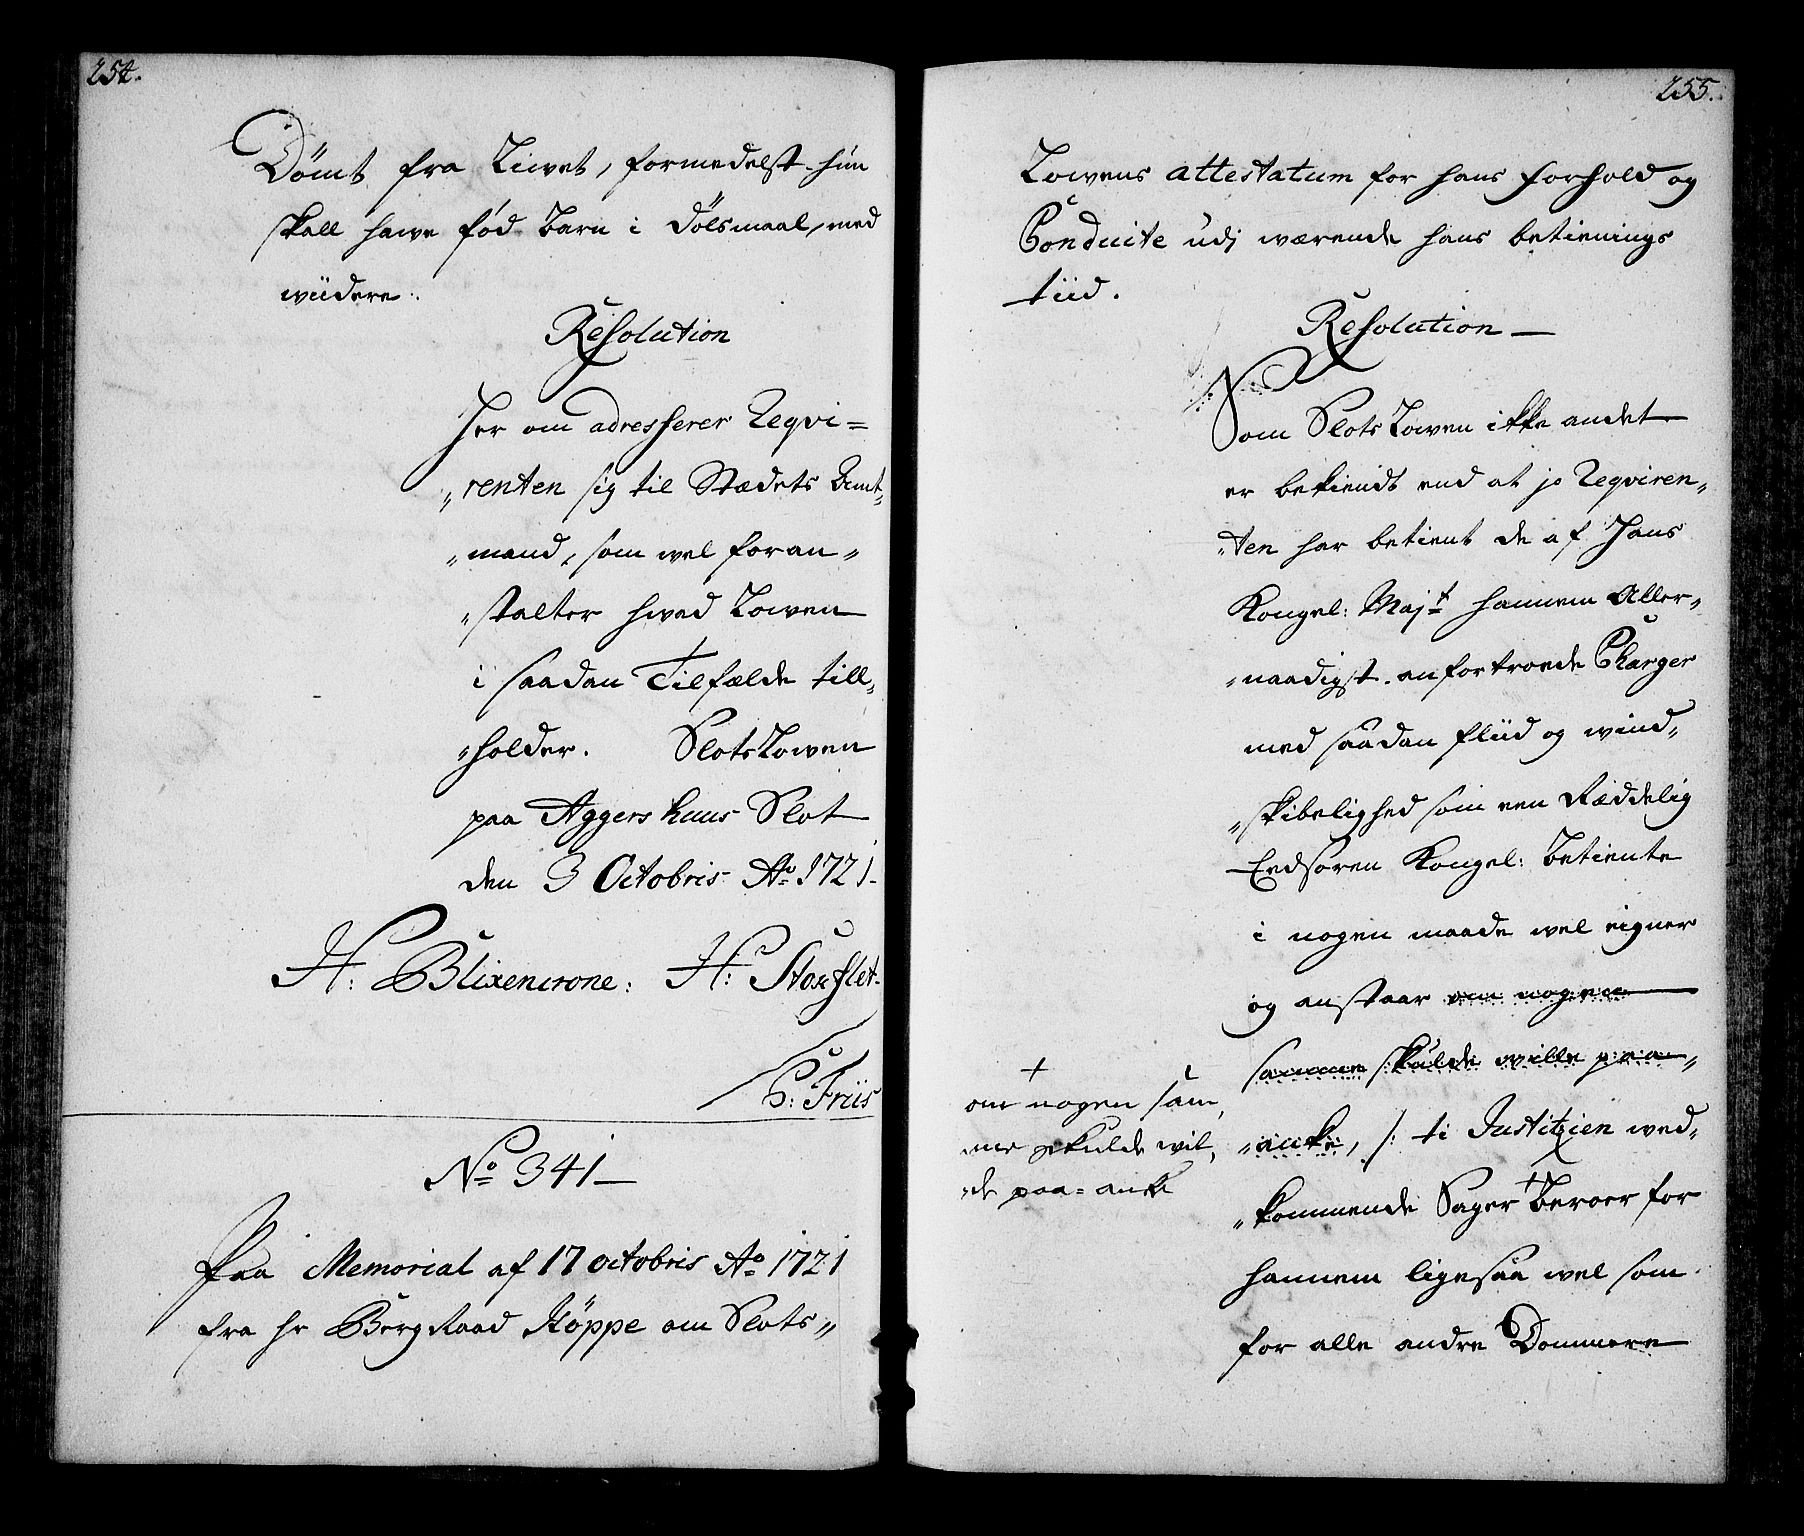 254.
Dömt fra Livet, formedelst hun
skall hawe fød Barn i Dölsmaal, med
wiidere.
Resolution
Her om adresserer Reqvi=
„renten sig til Stædets Amt„
„mand, som wel foran„
„stalter hwad Lowen
i saadan Tilfælde till„
„holder. SlotsLowen
paa Aggershuus Slot
den 3 Octobris Ao 1721.
H: Blixencrone: H: Storflet.
C: Friis
No 341
Paa Memorial af 17 octobris Ao 1721
fra hr BergRaad Köppe om Slots„
255.
Lowens attestatum for hans forhold og
Conduite udj wærende hans betienings
tiid.
Resolution
Som SlotsLowen ikke andet
er bekiendt end at jo Reqviren„
„ten har betient de af Hans
Kongel: Majt hannem Aller„
„naadigst anfortroede Charger
med saadan fliid og wind„
„skibelighed som een Ræddelig
Eedsoren Kongel: betiente
i nogen maade wel eigner
og anstaar om nogen
samme skulde wille paa„
„anke, /: ti Justitzien wed„
„kommende Sager + Beroer for
hannem ligesaa wel som
for alle andre Dommere
+
om nogen sam„
me skulde wil„
de paa=anke